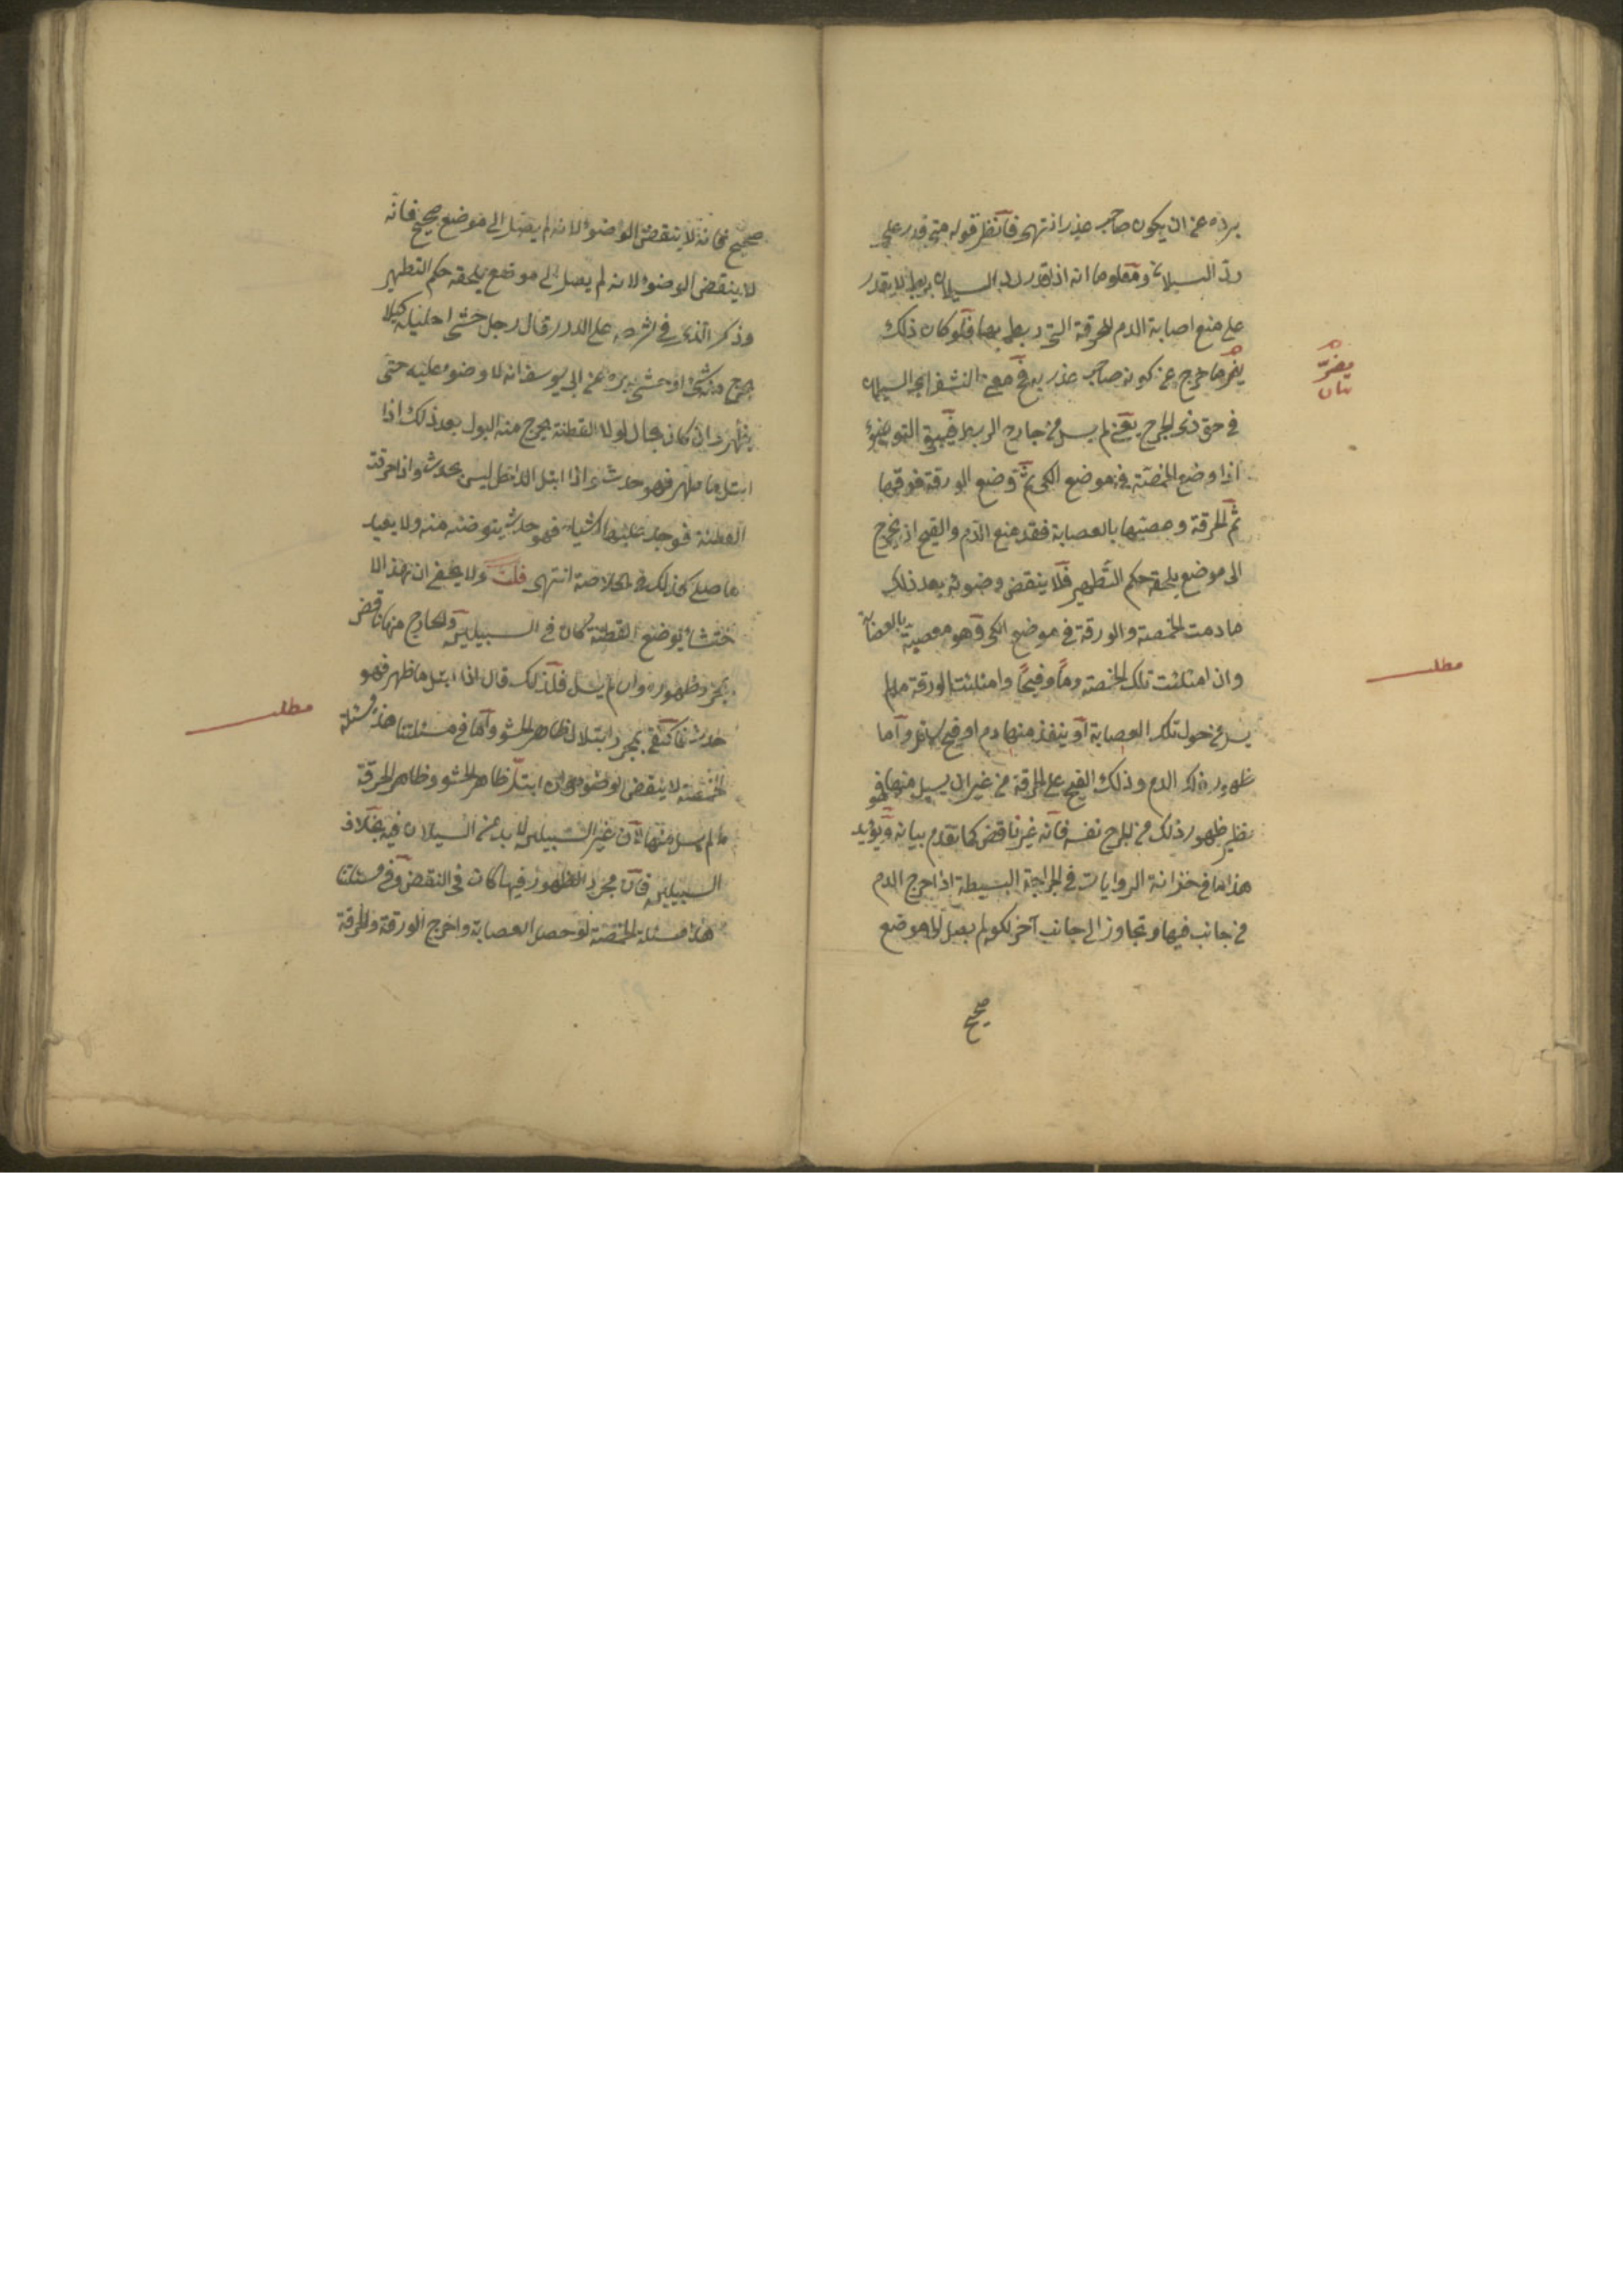 برده عن ان يكون صاحب عذر انتهى فانظر قوله متى قدر على
رد السيلان ومعلوما انه اذا قدر رد السيلان بربط لا يقدر
على منع اصابة الدم للخرقة التي ربط بها فلو كان ذلك
يضر ما خرج عن كونه صاحب عذر به في معنى النشف السيلان
في حق ذي الجرح يعني لم يسل من جارح الربط فيبقى التوضؤ
اذا وضع الحمصة في موضع الكي ثم وضع الورقة فوقها
ثم الخرقة وعصبها بالعصابة فقد منع الدم والقيح ان يخرج
الى موضع يلحقه حكم التطهير فلا ينقض وضوئه بعد ذلك
ما دمت الحمصة والورقة في موضع الكي وهو معصبة بالعصابة
وان امتلئت تلك الحمصة دما وقيحا وامتلئت الورقة ما لم
يسل من حول تلك العصابة او ينفذ منها دم او قيح واما
ظهور ذلك الدم وذلك القيح على الخرقة من غير ان يسيل منها فهو
نظير ظهور ذلك من الجرح نفسه فانه غير ناقض كما تقدم بيانه ويؤيد
هذا ما في خزانة الروايات في الجراحة البسيطة اذا خرج الدم
من جانب فيها وتجاوز الى جانب آخر لكن لم يصل الى موضع
صحيح
يضر
بيان
مطلب
صحيح فانه لا ينقض الوضوء لانه لم يصل الى موضع صحيح فانه
لا ينقض الوضوء لانه لم يصل الى موضع يلحقه حكم التطهير
وذكر الذي في شرحه على الدرر قال رجل حشى احليله كيلا
يخرج منه شئ او حشى دبره عن ابي يوسف انه لا وضوء عليه حتى
يظهر وان كان بحال لولا القطنة يخرج منه البول بعد ذلك اذا
ابتل ما ظهر فهو حدث واذا ابتل الداخل ليس بحدث واذا
القطنة فوجد عليها شيأ فهو حدث يتوضئ منه ولا يعيد
ما صلى كذلك في الخلاصة انتهى قلت ولا يخفى ان هذا الا
حتشا بوضع القطنة كان في السبيلين والخارج منها ناقض
بمجرد ظهوره وان لم يسل فلذلك قال اذا ابتل ما ظهر فهو
حدث فاكتفى بمجرد ابتلال ظاهر الحشو واما في مسئلتنا هذه مسئلة
الحمصة لا ينقض الوضوء وان ابتل ظاهر الحشو وظاهر الخرقة
ما لم يسل منها لان غير السبيلين لا بد من السيلان فيه بخلاف
السبيلين فان مجرد الظهور فيها كان في النقض وفي مسئلتنا
هذا مسئلة الحمصة لو حصل العصابة واخرج الورقة والخرقة
مطلب